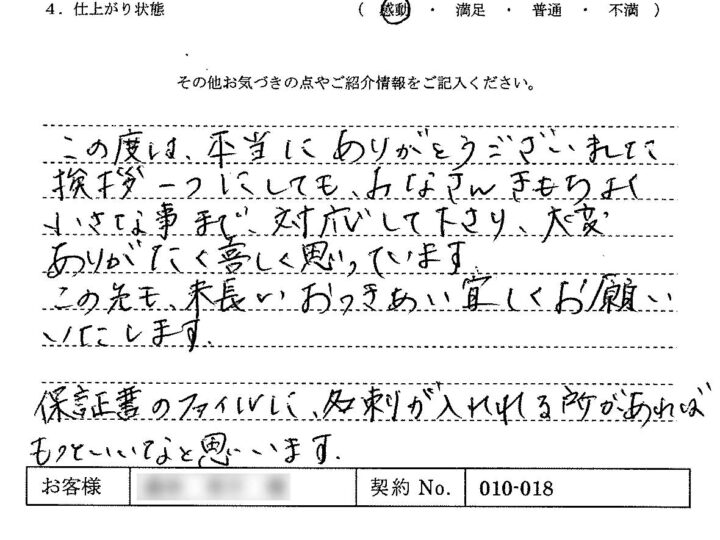 4．仕上がり状態 （ 感動 ・ 満足 ・ 普通 ・ 不満 ）
その他お気づきの点やご紹介情報をご記入ください。
この度は、本当にありがとうございました
挨拶一つにしても、みなさんきもちよく
小さな事まで、対応して下さり、大変
ありがたく喜しく思っています。
この先も、末長いおつきあい宜しくお願い
いたします。
保証書のファイルに、名刺が入れれる所があれば
もっといいなと思います。
お客様 契約 No. 010-018